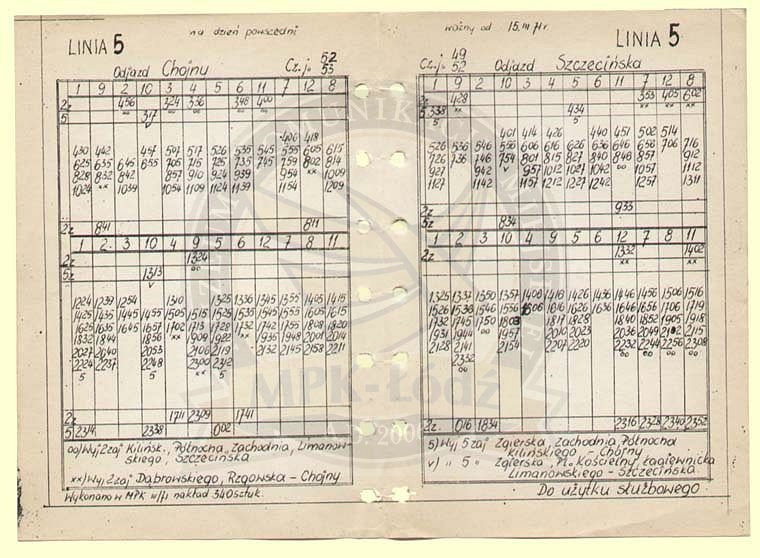 na dzień powszedni
LINIA 5
Odjazd Chojny
Cz.j. 52
53
1 9 2 10 3 4 5 6 11 7 12 8
2z 456 324 336 348 400
5 317
406 418
430 442 457 507 517 526 535 545 555 605 615
625 635 645 655 705 715 725 735 745 759 802 814
828 832 842 857 910 924 939 954 1009
1024 1039 1054 1109 1124 1139 1154 1209
2z 841 811
1 2 3 10 4 9 5 6 12 7 8 11
2z 1324
5z 1313
1224 1239 1254 1310 1325 1336 1345 1355 1405 1415
1425 1435 1445 1455 1505 1515 1525 1535 1545 1555 1605 1615
1625 1635 1645 1657 1702 1713 1728 1732 1742 1755 1808 1820
1832 1844 1856 1909 1922 1935 1948 2001 2014
2027 2040 2053 2106 2119 2132 2145 2158 2211
2224 2237 2248 2300 2312
2z 1711 2329 1741
5 2314 2338 002
oo) Wyj. 2 zaj Kilińsk., Północna, Zachodnia, Limanow-
skiego, Szczecińska
xx) Wyj. 2 zaj Dąbrowskiego, Rzgowska - Chojny
Wykonano w MPK III/71 nakład 340 sztuk.
ważny od 15.III 71r.
LINIA 5
Cz.j. 49
52
Odjazd Szczecińska
1 9 2 10 3 4 5 6 11 7 12 8
2z 428 353 405 602
5 338 434
401 414 426 440 451 502 514
526 536 546 556 606 616 626 636 646 656 706 716
726 736 746 754 801 815 827 840 848 857 912
927 942 957 1012 1027 1042 1057 1112
1127 1142 1157 1212 1227 1242 1257 1311
2z 933
5z 834
1 2 3 10 4 9 5 6 12 7 8 11
2z 1332 1402
1325 1337 1350 1357 1406 1416 1426 1436 1446 1456 1506 1516
1526 1536 1546 1556 1606 1616 1626 1636 1646 1656 1706 1719
1732 1745 1750 1803 1817 1828 1840 1852 1905 1918
1931 1944 1957 2010 2023 2036 2049 2102 2115
2128 2141 2154 2207 2220 2232 2244 2256 2308
2352
2z 016 1834 2316 2328 2340 2352
5) Wyj. 5 zaj Zgierska, Zachodnia, Północna
Kilińskiego - Chojny
v) " 5 " Zgierska, Pl. Kościelny, Łagiewnicka
Limanowskiego - Szczecińska
Do użytku służbowego
MPK-Łódź